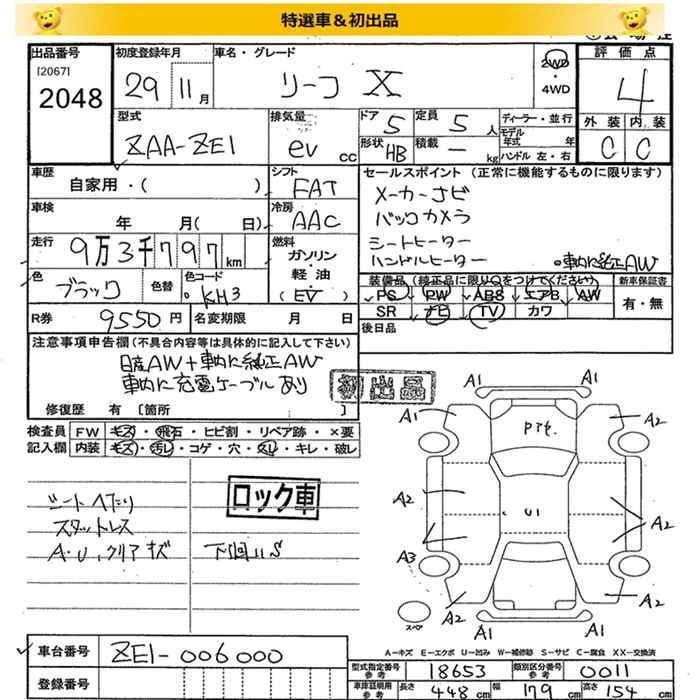 特選車＆初出品
出品番号
[2067]
2048
初度登録年月
29 11月
車名・グレード
リーフ X
2WD
・
4WD
評価点
4
外装 内装
C C
型式
ZAA-ZE1
排気量
ev cc
ドア 5
定員 5 人
形状 HB
積載 － kg
ディーラー・並行
モデル年式 年
ハンドル 左・右
車歴
自家用・( )
シフト
FAT
車検
年 月( 日)
冷房
AAC
走行
9万3千797km
燃料
ガソリン
軽油
(EV)
色
ブラック
色替
色コード
KH3
R券
9550円
名変期限 月 日
セールスポイント (正常に機能するものに限ります)
メーカーナビ
バックカメラ
シートヒーター
ハンドルヒーター
車内に純正AW
装備品 (純正品に限り○をつけてください)
PS PW ABS エアB AW
SR ナビ TV カワ
新車保証書
有・無
後日品
注意事項申告欄(不具合内容等は具体的に記入して下さい)
日産AW＋車内に純正AW
車内に充電ケーブルあり
修復歴 有 [箇所 ]
初出品
検査員記入欄
FW キズ・飛石・ヒビ割・リペア跡・×要
内装 キズ・汚レ・コゲ・穴・スレ・キレ・破レ
ロック車
シートヘタリ
スタットレス
A・U、クリアキズ 下回りS
A1 A1
A1 A2
Pｱｾ.
A2 U1 A2
A3
A2 A2
A1 A1
スペア
A－キズ E－エクボ U－凹み W－補修跡 S－サビ C－腐食 XX－交換済
車台番号
ZE1-006000
登録番号
型式指定番号 参考 18653
類別区分番号 参考 0011
車庫証明用 参考 長さ 448cm 幅 179cm 高さ 154cm